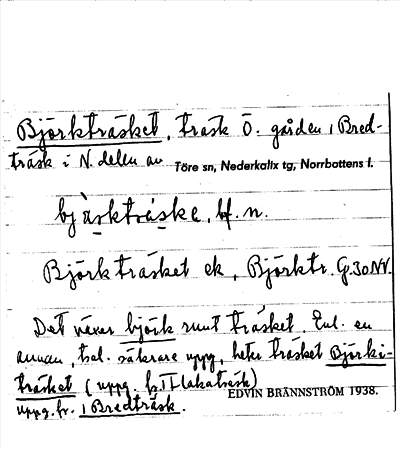 Björkträsket, träsk Ö. gården i Bred-
träsk i N. delen av Töre sn, Nederkalix tg, Norrbottens l.
bjäskträske, bf. n.
Björkträsket ek, Björktr. Gp.30NV.
Det växer björk runt träsket. Enl. en
annan, tral. säkrare uppg, heter träsket Björki-
träsket (uppg. fr.
uppg. fr. i Bredträsk.
EDVIN BRÄNNSTRÖM 1938.